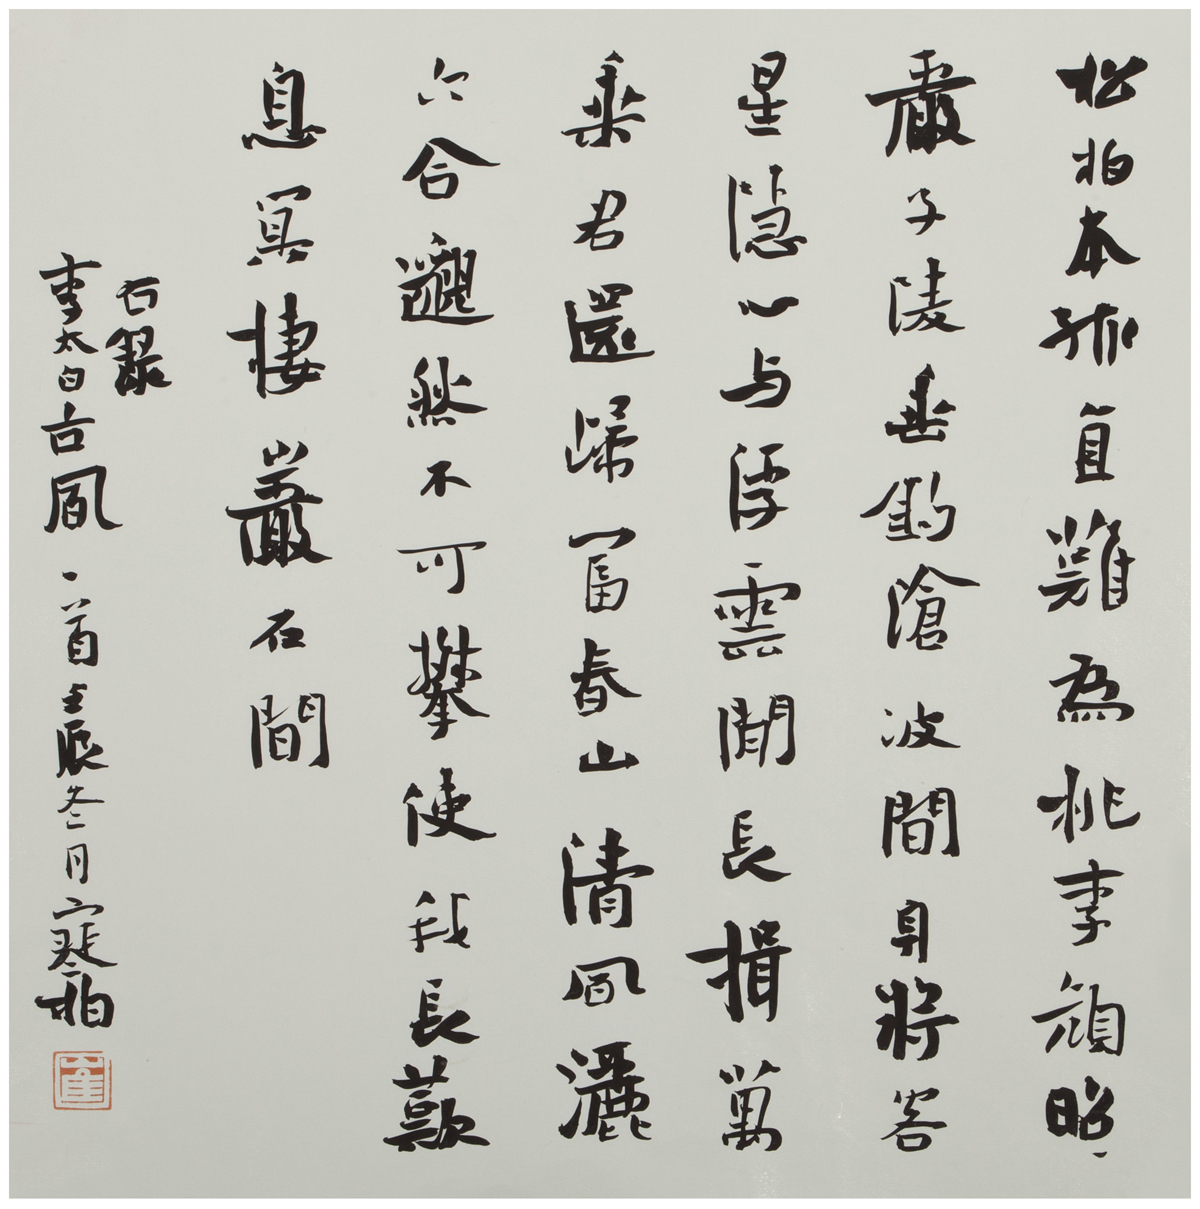 松柏本孤直難為桃李顏昭〻
嚴子陵垂釣滄波間身將客
星隱心与浮雲閒長揖萬
乘君還歸富春山清風灑
六合邈然不可攀使我長歎
息冥棲巖石間
右錄
李太白古風一首壬辰冬月寒柏
崔